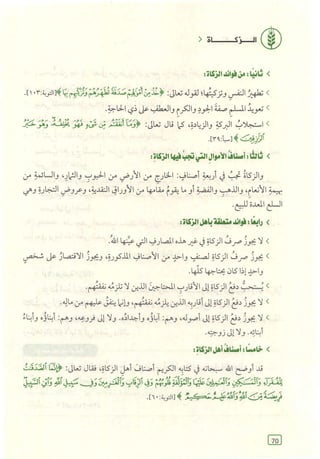 الـــزكـــــاة
ثانيًا: من فوائد الزكاة:
تطهيرُ النفسِ وتزكيتُها؛ لقوله تعالى: ﴿خُذْ مِنْ أَمْوَالِهِمْ صَدَقَةً تُطَهِّرُهُمْ وَتُزَكِّيهِم بِهَا﴾ [التوبة: ١٠٣].
تعويدُ المسلمِ صفةَ الجودِ والكرمِ والعطفِ على ذي الحاجةِ.
استجلابُ البركةِ والزيادةِ، كما قال تعالى: ﴿وَمَا أَنفَقْتُم مِّن شَيْءٍ فَهُوَ يُخْلِفُهُ وَهُوَ خَيْرُ
الرَّازِقِينَ﴾ [سبأ: ٣٩].
ثالثًا: أصنافُ الأموالِ التي تجبُ فيها الزكاة:
والزكاةُ تجبُ في أربعةِ أصنافٍ: الخارجِ من الأرضِ من الحبوبِ والثمارِ، والسائمةِ من
بهيمةِ الأنعامِ، والذهبِ والفضةِ أو ما يقومُ مقامَها من الأوراقِ النقديةِ، وعروضِ التجارةِ وهي
السلع المعدة للبيع.
رابعًا: فوائد متعلقة بأهل الزكاة:
لا يجوزُ صرفُ الزكاةِ في غيرِ هذه المصارفِ التي عيَّنها اللهُ.
يجوزُ صرفُ الزكاةِ لصنفٍ واحدٍ من الأصنافِ المذكورةِ، ويجوزُ الاقتصارُ على شخصٍ
واحدٍ إذا كان يحتاجها كلَّها.
يُستحبُّ دفعُ الزكاةِ إلى الأقاربِ المحتاجين الذين لا تلزمُه نفقتُهم.
لا يجوزُ دفعُ الزكاةِ إلى أقاربِه الذين يلزمُه نفقتُهم، وإنما ينفقُ عليهم من مالِه.
لا يجوزُ دفعُ الزكاةِ إلى أصولِه، وهم: آباؤُه وأجدادُه. ولا إلى فروعِه، وهم: أبناؤُه وأبناءُ
أبنائِه. ولا إلى زوجتِه.
خامسًا: أصناف أهل الزكاة:
قد أوضح اللهُ سبحانه في كتابِه الكريمِ أصنافَ أهلِ الزكاةِ، فقال تعالى: ﴿إِنَّمَا الصَّدَقَاتُ
لِلْفُقَرَاءِ وَالْمَسَاكِينِ وَالْعَامِلِينَ عَلَيْهَا وَالْمُؤَلَّفَةِ قُلُوبُهُمْ وَفِي الرِّقَابِ وَالْغَارِمِينَ وَفِي سَبِيلِ اللَّهِ وَابْنِ السَّبِيلِ
فَرِيضَةً مِّنَ اللَّهِ وَاللَّهُ عَلِيمٌ حَكِيمٌ﴾ [التوبة: ٦٠].
70